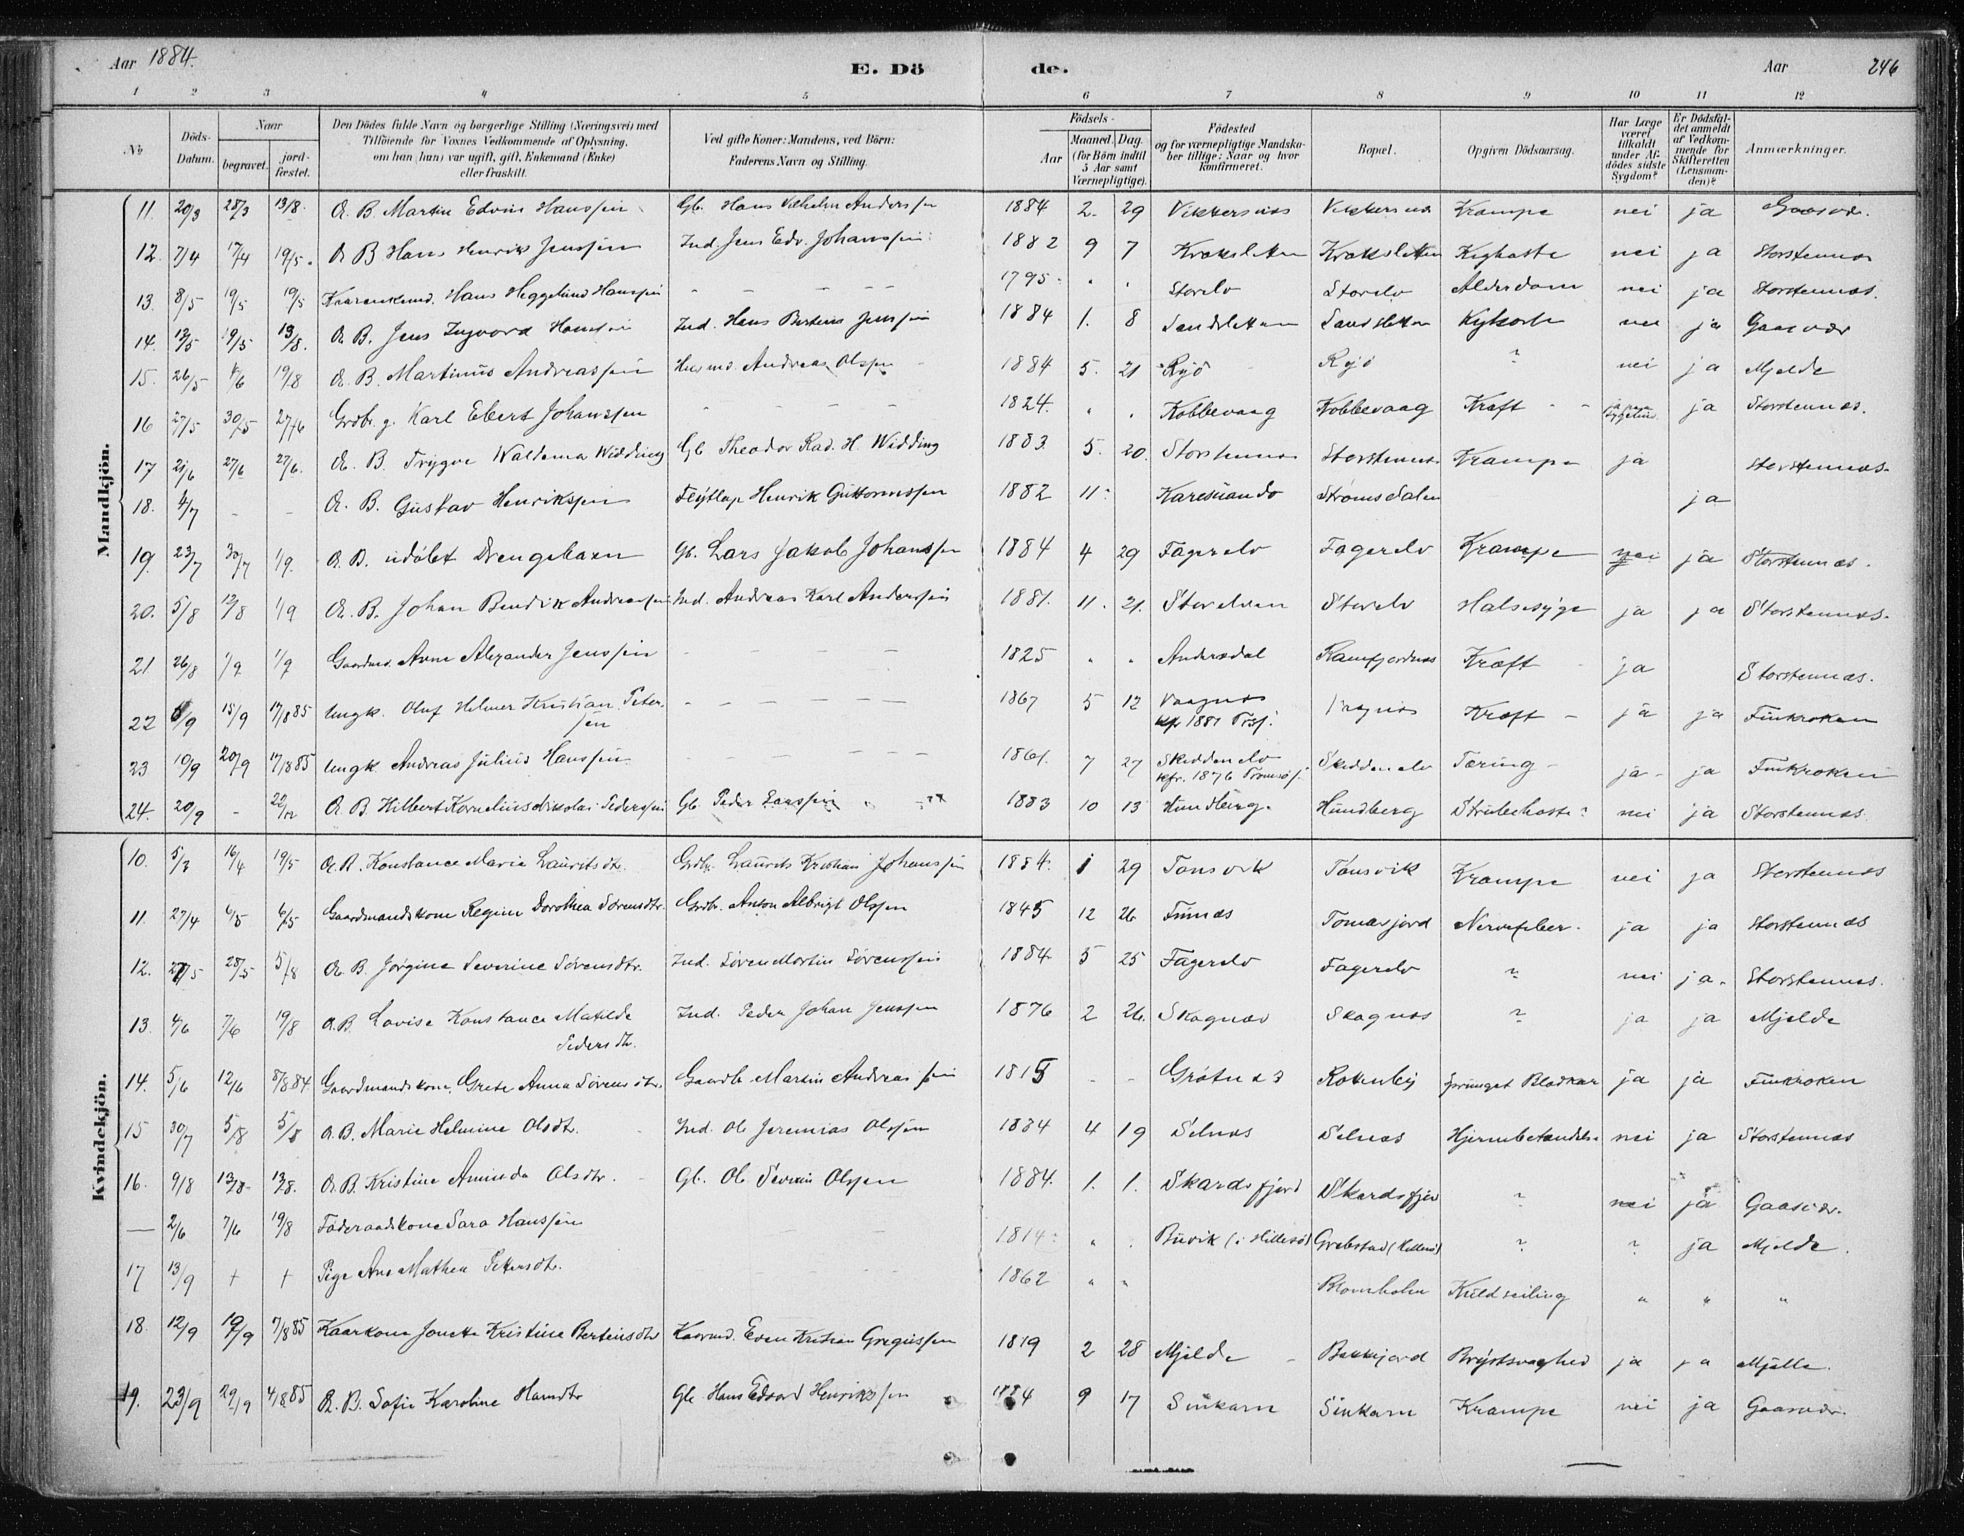 Aar 1884. E. Döde. Aar 246
1 2 3 4 5 6 7 8 9 10 11 12
No Döds-Datum. Naar begravet. jordfæstet. Den Dödes fulde Navn og borgerlige Stilling (Næringsvei) med Tilföiende for Voxnes Vedkommende af Oplysning, om han (hun) var ugift, gift, Enkemand (Enke) eller fraskilt. Ved gifte Koner: Mandens, ved Börn: Faderens Navn og Stilling. Födsels- Aar Maaned. Dag. (for Börn indtil 5 Aar samt Værnepligtige). Födested og for værnepligtige Mandskaber tillige: Naar og hvor konfirmeret. Bopæl. Opgiven Dödsaarsag. Har Læge været tilkaldt under Afdödes sidste Sygdom? Er Dödsfaldet anmeldt af Vedkommende for Skifteretten (Lensmanden)? Anmærkninger.
Mandkjön.
11. 20/3 28/3 13/8. Æ. B. Martin Edvin Hanssen Gb. Hans Vilhelm Anderssen 1884 2. 29 Vikkersnæs Vikkersnæs Krampe nei ja Gaasvær.
12. 7/4 17/4 19/5. Æ B Hans Henrik Jenssen Ind. Jens Edv. Johanssen 1882 9 7 Kroksletten Kroksletten Kighoste nei ja Storstennæs
13. 8/5 19/5 19/5 Kaarenkemd. Hans Heggelund Hanssen - - - - 1795 " " Storelv Storelv Alderdom nei ja Storstennæs.
14. 13/5 19/5 13/8. Æ. B. Jens Ingvard Hanssen Ind. Hans Bertens Jenssen 1884 1. 8 Sandsletten Sandsletten Kighoste nei ja Gaasvær
15. 26/5 6/6 19/8 Æ. B. Martinus Andreassen Husmd. Andreas Olssen 1884 5. 21 Ryö Ryö ? nei ja Mjelde
16 27/5 30/5 27/6 Grdbr. g. Karl Ebert Johanssen - - - - 1824. " " Kobbevaag Kobbevaag Kræft - - ja Storstennæs.
17 21/6 27/6 27/6. Æ. B. Trygve Waldemar Widding Gb Theodor Rad. H. Widding 1883 5. 20. Storstennæs Storstennæs Krampe ja Storstennæs.
18. 4/7 - - Æ. B. Gustav Henrikssen Flytlap Henrik Guttormssen 1882 11. Karesuando Strömsdalen ja
19. 23/7 30/7 1/9. Æ. B. udöbt Drengebarn Gb. Lars Jakob Johanssen 1884 4 29 Fagerelv Fagerelv Krampe nei ja Storstennæs.
20. 5/8 12/8 1/9 Æ. B. Johan Bendik Andreassen Ind. Andreas Karl Anderssen 1881. 11. 21. Storelven Storelv Halsesyge ja ja Storstennæs.
21 26/8 1/9 1/9 Gaardmd. Arne Alexander Jenssen - - - - 1825 " " Andersdal Ramfjordnæs Kræft - ja Storstennæs.
22 6/9 15/9 17/8 85 Ungk. Oluf Helmer Kristian Peterssen - - - - 1867 5 12 Vaagnæs kfr 1881 Vaagnæs Kræft - ja ja Finkroken
23 10/9 20/9 17/8 85 Ungk. Andreas Julius Hanssen - - - - 1861. 7 27 Skeddenelv kfr. 1876 Tromsö. Skeddenelv Tæring - ja ja Finkroken
24. 20/9 - 20/12 Æ. B Hilbert Kornelius Nikolai Pederssen Gb Peder Larssen 1883 10 13 Hundberg. Hundberg Strubehoste? nei ja Storstennæs.
Kvindekjön.
10. 5/3 16/4 19/5 Æ. B. Konstance Marie Lauritsdtr. Grdbr. Laurits Kristian Johanssen 1884. 1 29 Tansvik Tansvik Krampe nei ja Storstennæs
11. 27/4 6/5 6/5 Gaardmandskone Regine Dorothea Sörensdtr. Grdbr. Anton Albrigt Olssen 1845 12 26 Finnæs Tomasjord Nervefeber. ja ja Storstennæs
12. 27/5 28/5 5/8 Æ. B. Jörgine Severine Sörensdtr. Ind. Sören Martin Sörenssen 1884 5 25 Fagerelv Fagerelv ? nei ja. Storstennæs.
13. 4/6 7/6 19/8 Æ. B. Lovise Konstance Matilde Pedersdtr. Ind. Peder Johan Jenssen 1876 2 26. Skognæs Skognæs ? ja ja Mjelde
14. 5/6 12/6 8/8 84 Gaardmandskone. Grete Anna Sörensdtr. Gaardb Martin Andreassen 1815 - - Grötnæs Rotenby Sprunget Blodkar ja ja Finkroken
15 30/7 5/8 5/8 Æ. B. Marie Helmine Olsdtr. Ind. Ole Jeremias Olssen 1884 4 19 Selnæs Selnæs Hjernebetændelse nei ja Storstennæs
16. 9/8 13/8. 13/8. Æ. B. Kristine Aminda Olsdtr. Gb. Ole Severin Olssen 1884. 1. 1. Skardsfjord Skardsfjord ? nei ja Gaasvær.
— 2/6 7/6 19/8 Föderaadskone Sara Hanssen 1814 " . Buvik (i Hillesö) Grebstad (Hillesö) ? ? ja Mjelde.
17 13/9 + + Pige Ane Mathea Petersdtr. 1862 " " Blomholm Kuldseiling " " "
18. 12/9 19/9 7/8 85 Kaarkone Jonetta Kristine Berteusdtr Kaarmd. Even Kristian Gregussen 1819 2 28 Mjelde - Bakkejord Brystsvaghed ja ja Mjelde.
19. 23/9 29/9 4/8 85 Æ. B. Sofie Karoline Hansdtr Gb. Hans Edvard Henrikssen 1884 9 17 Sinkarn Sinkarn Krampe nei ja Gaasvær.